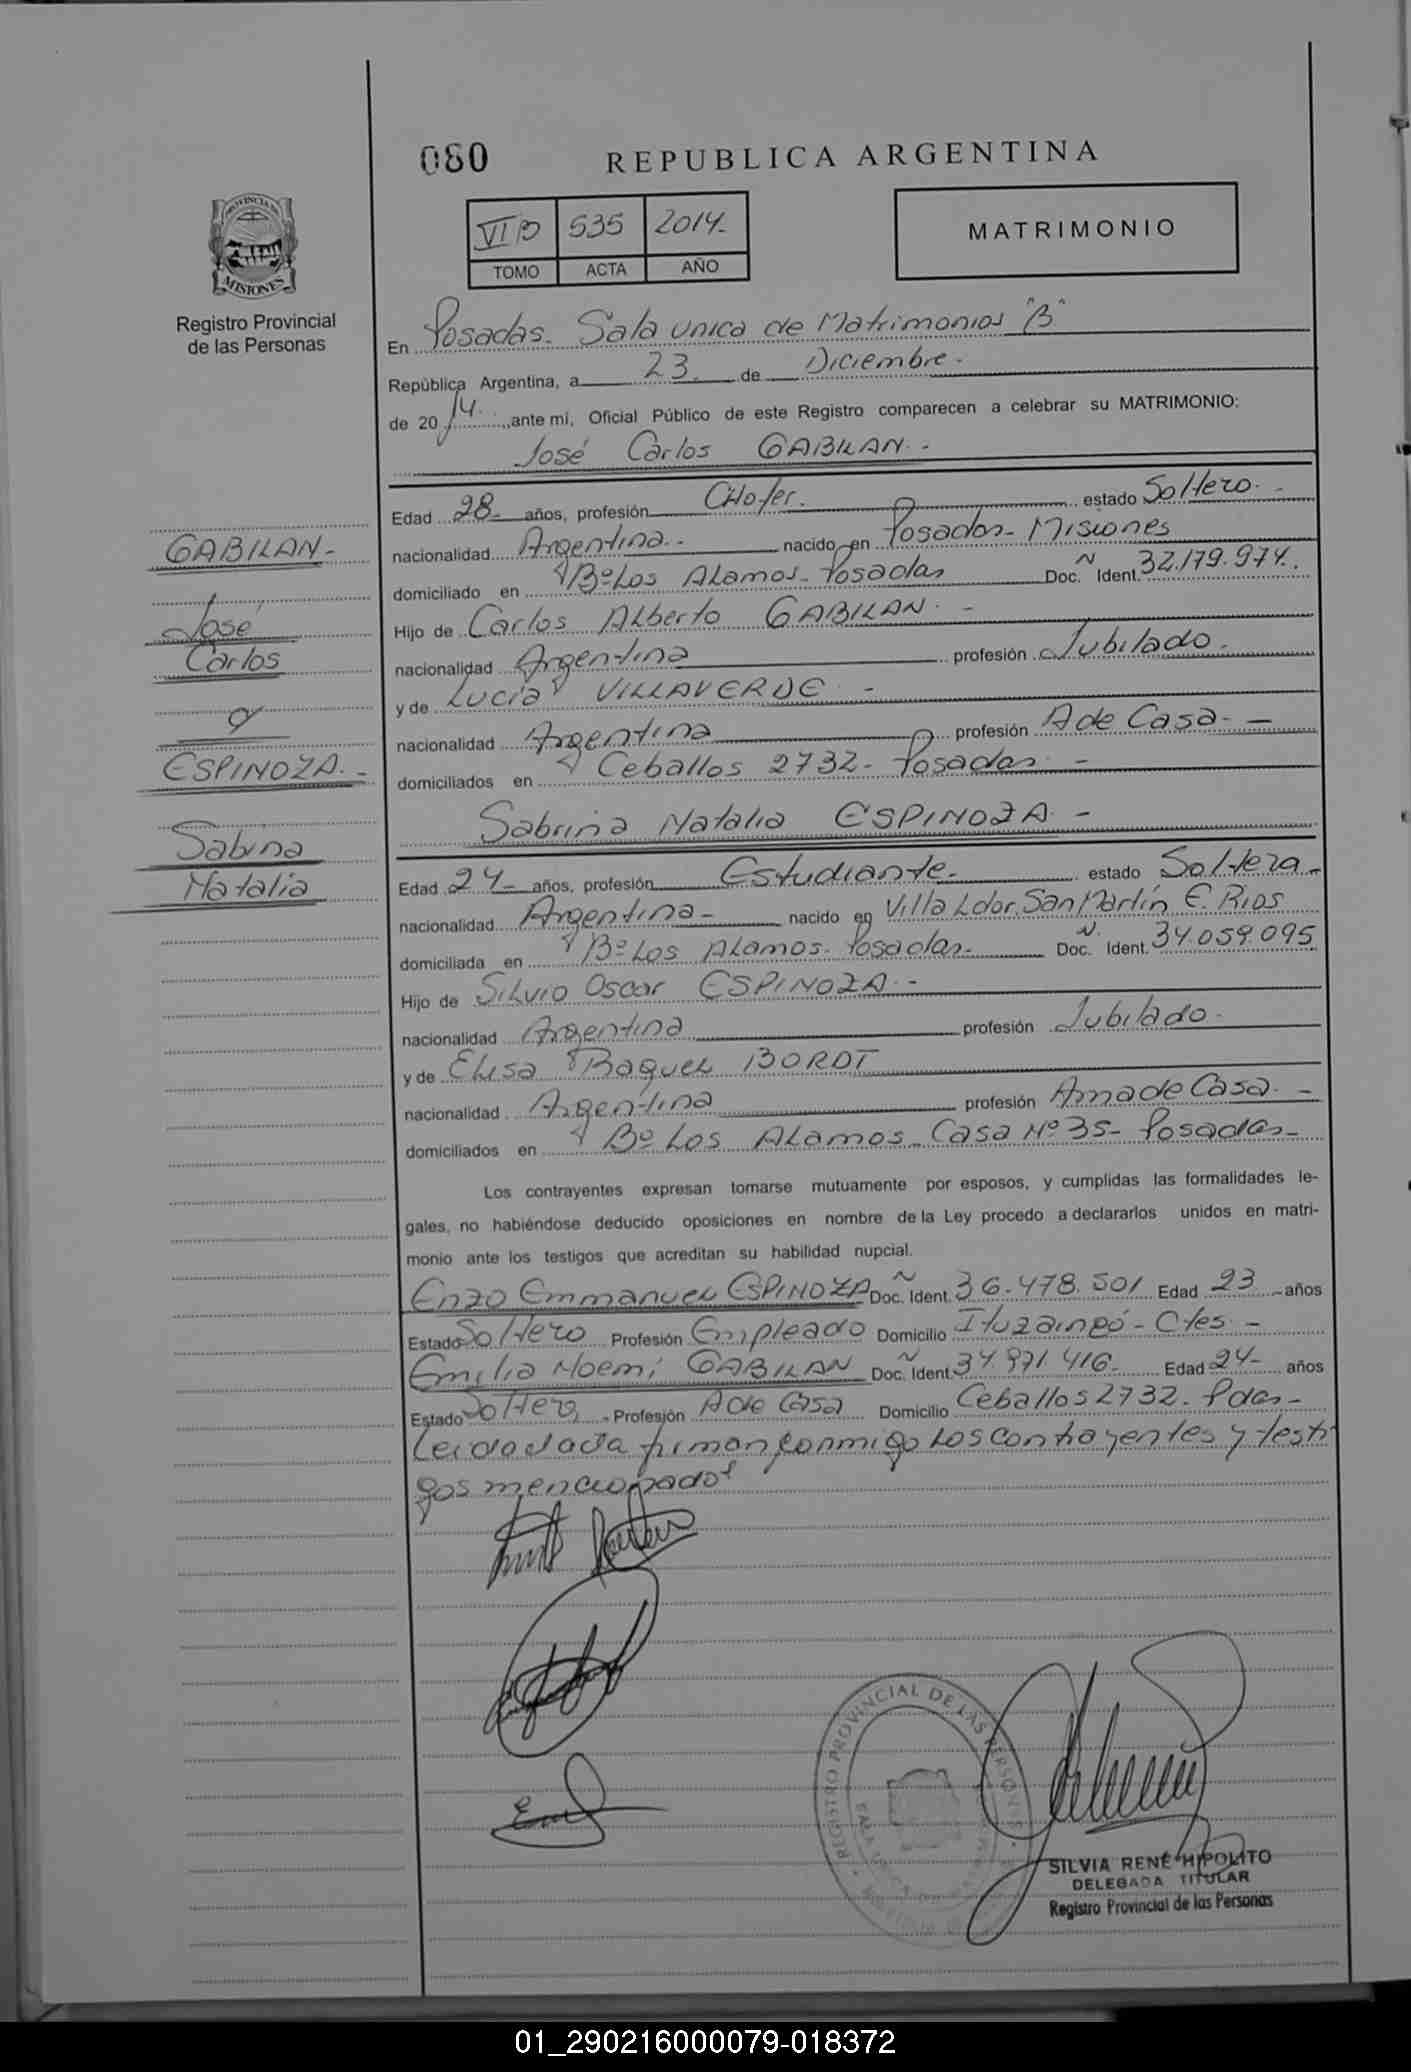 080 REPUBLICA ARGENTINA
PROVINCIA DE
MISIONES
Registro Provincial
de las Personas
VI B 535 2014.-
TOMO ACTA AÑO
MATRIMONIO
En Posadas. Sala unica de Matrimonios "B"
República Argentina, a 23. de Diciembre.-
de 20 14. ante mi, Oficial Público de este Registro comparecen a celebrar su MATRIMONIO:
José Carlos GABILAN.-
Edad 28- años, profesión CHofer. estado Soltero.-
nacionalidad Argentina.- nacido en Posadas- Misiones
domiciliado en Bº Los ALamos- Posadas Doc. N Ident. 32.179.974.
Hijo de Carlos ALberto GABILAN.-
nacionalidad Argentina profesión Jubilado.
y de Lucia VILLAVERDE.-
nacionalidad Argentina profesión A de Casa.-
domiciliados en Ceballos 2732- Posadas.-
Sabrina Natalia ESPINOZA.-
Edad 24- años, profesión Estudiante.- estado Soltera-
nacionalidad Argentina- nacido en Villa Ldor. San Martín E. Rios
domiciliada en Bº Los ALamos- Posadas- Doc. N Ident. 34.059.095
Hijo de SiLvio Oscar ESPINOZA.-
nacionalidad Argentina profesión Jubilado.
y de ELisa RaqueL BORDT
nacionalidad Argentina profesión Ama de Casa.-
domiciliados en Bº Los ALamos- Casa Nº 35- Posadas-
Los contrayentes expresan tomarse mutuamente por esposos, y cumplidas las formalidades le-
gales, no habiéndose deducido oposiciones en nombre de la Ley procedo a declararlos unidos en matri-
monio ante los testigos que acreditan su habilidad nupcial.
Enzo EmmanueL ESPINOZA Doc. N Ident. 36.478.501 Edad 23 años
Estado Soltero Profesión Empleado Domicilio Ituzaingó- Ctes.-
EmiLia Noemi GABILAN Doc. N Ident. 34.971.416- Edad 24- años
Estado Soltera - Profesión A de Casa Domicilio Ceballos 2732- Pdas-
Leida el acta firman conmigo Los contrayentes y testi
gos mencionados
GABILAN-
José
Carlos
y
ESPINOZA.-
Sabina
Natalia
REGISTRO PROVINCIAL DE LAS PERSONAS
SILVIA RENÉ HIPOLITO
DELEGADA TITULAR
Registro Provincial de las Personas
01_290216000079-018372